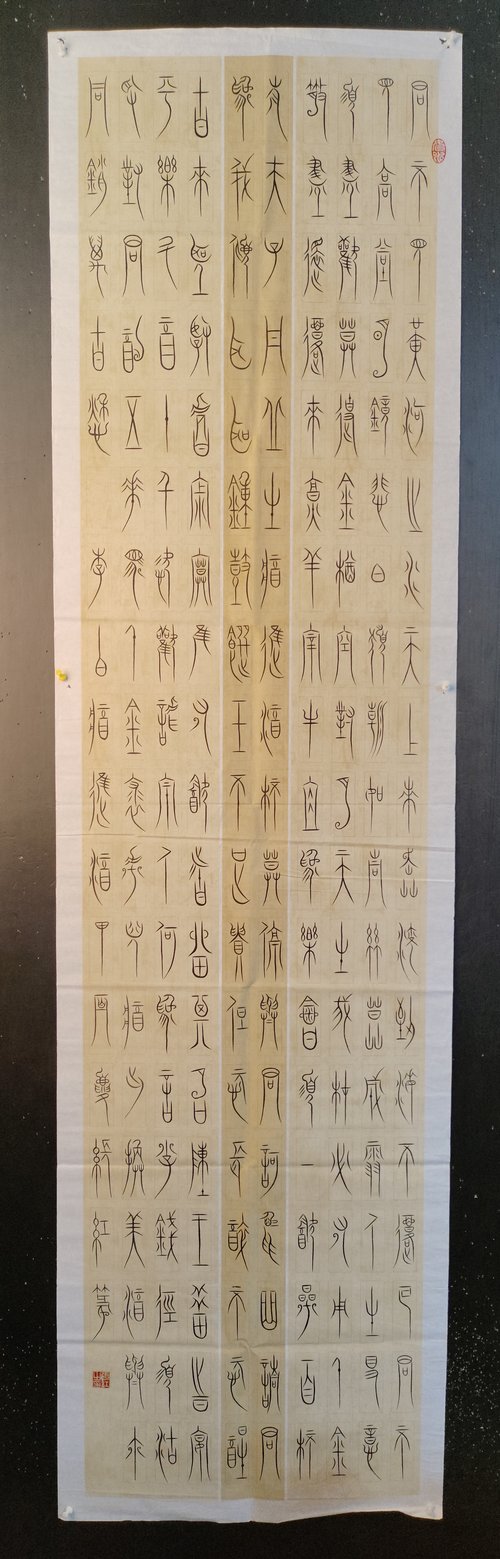 君不見黃河之水天上來奔流到海不復回君不
見高堂明鏡悲白髮朝如青絲暮成雪人生得意
須盡歡莫使金樽空對月天生我材必有用千金
散盡還復來烹羊宰牛且為樂會須一飲三百杯
岑夫子丹丘生將進酒杯莫停與君歌一曲請君
為我傾耳聽鐘鼓饌玉不足貴但願長醉不願醒
古來聖賢皆寂寞惟有飲者留其名陳王昔時宴
平樂斗酒十千恣歡謔主人何為言少錢徑須沽
取對君酌五花馬千金裘呼兒將出換美酒與爾
同銷萬古愁 李白將進酒甲夏紅篆